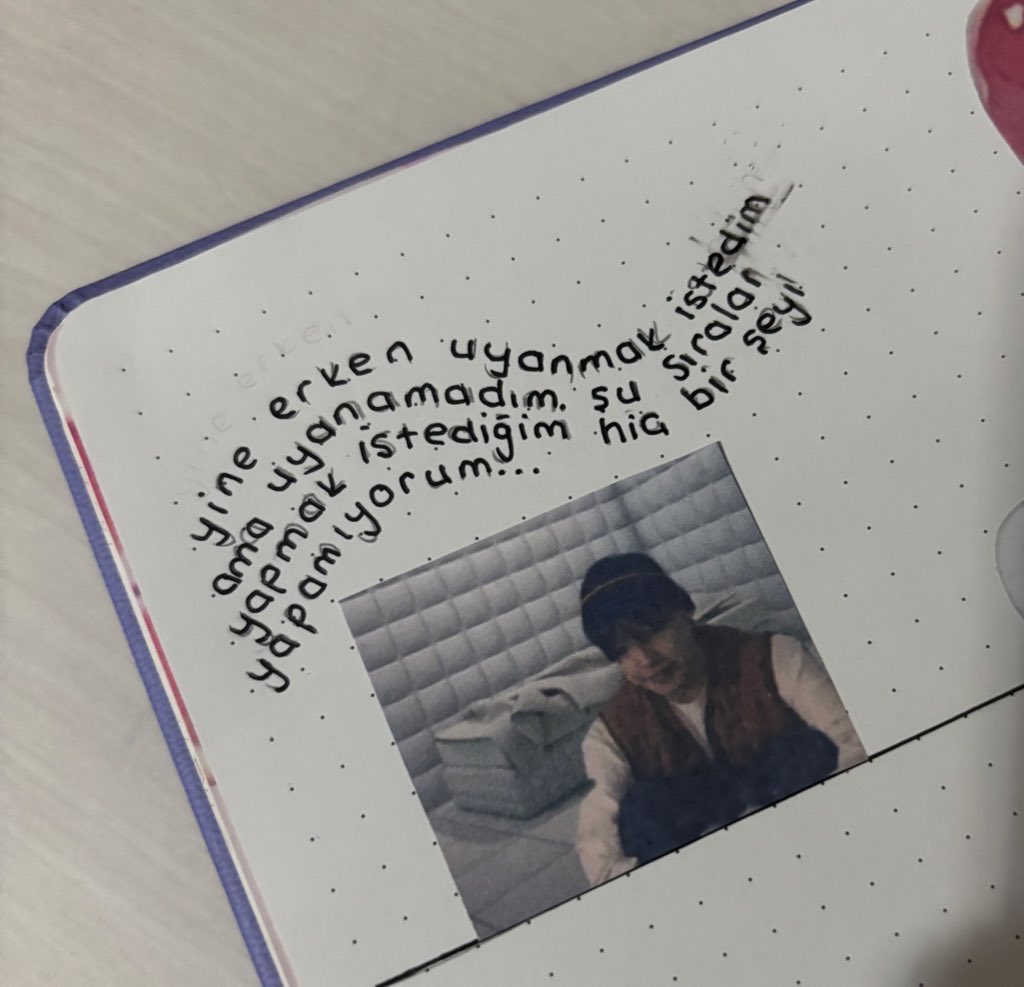 yine erken uyanmak istedim
ama uyanamadım. şu sıralar
yapmak istediğim hiç bir şeyi
yapamıyorum...